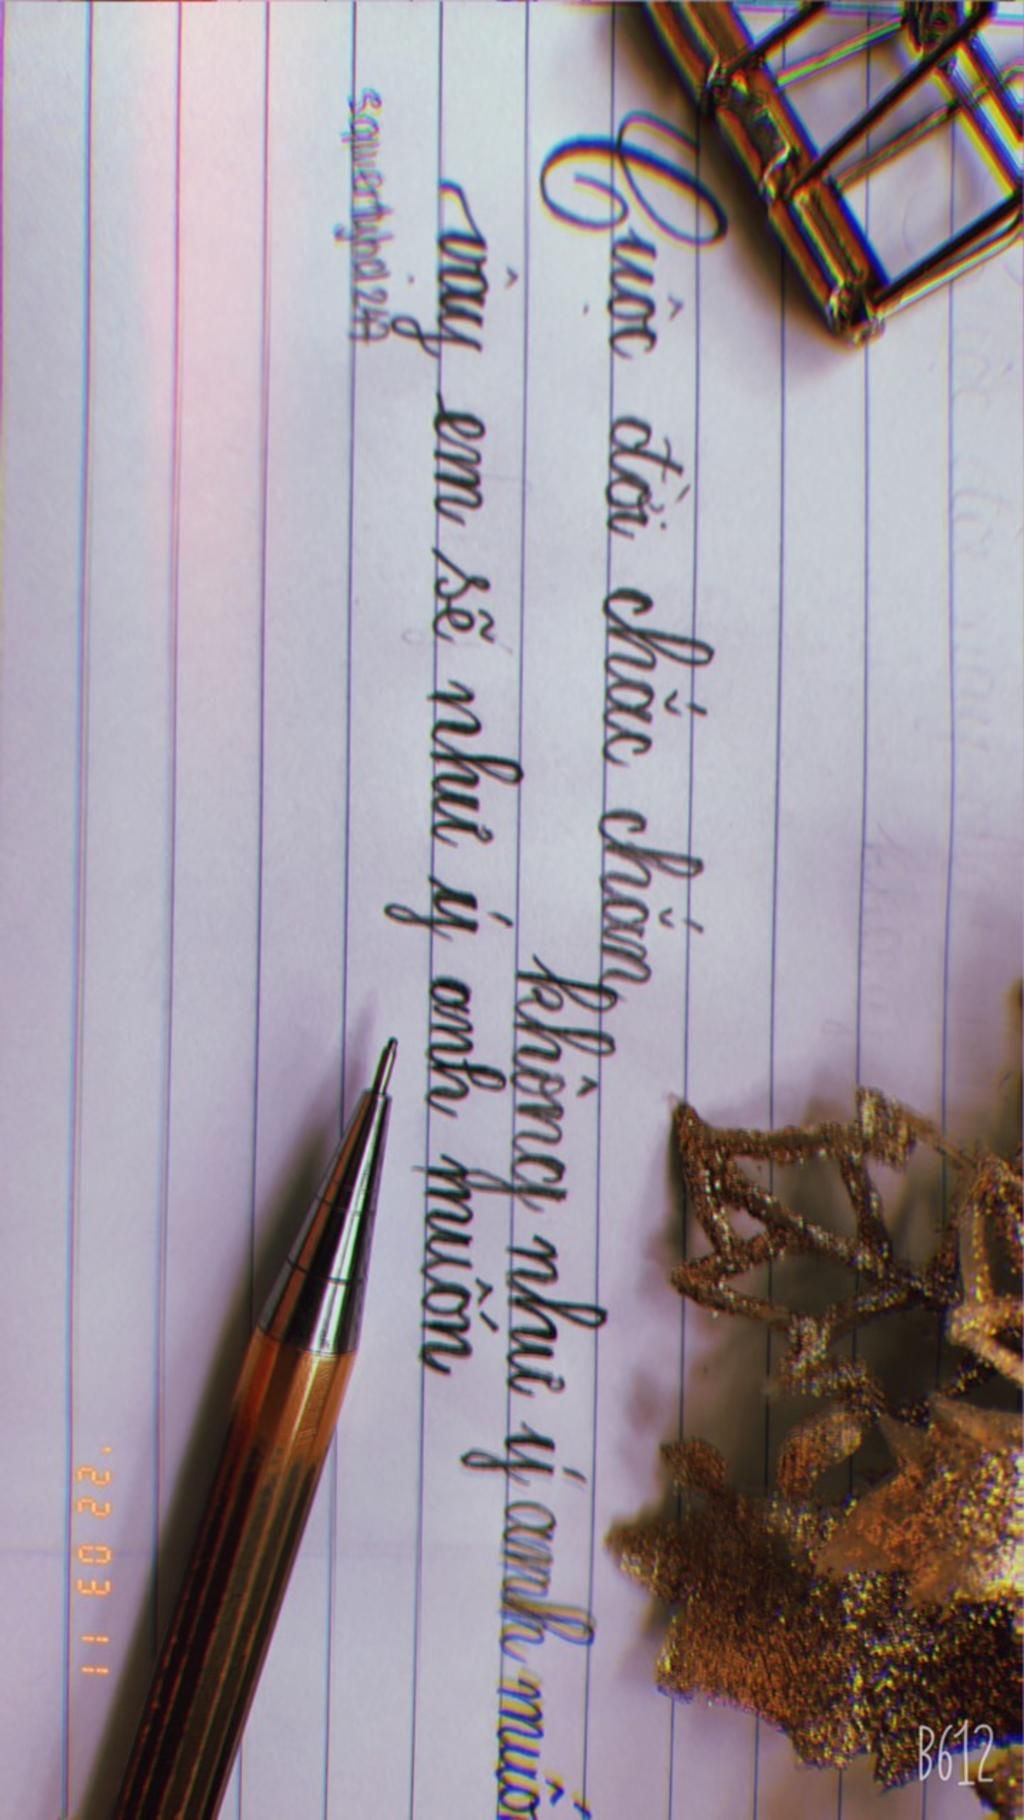 Cuộc đời chắc chắn,
không như ý anh muốn
vây em sẽ như ý anh muốn
squertyhd247
'22 03 11
B612